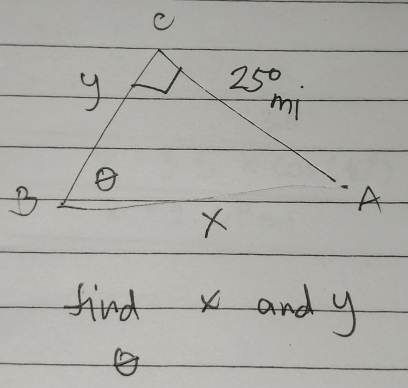 C
y 250 mi
θ
B A
x
find x and y
θ